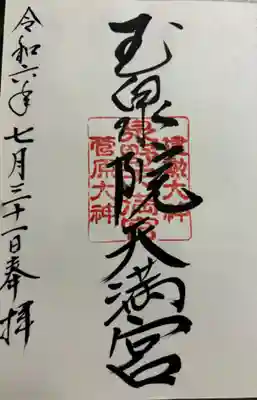 玉泉院天満宮
泉野天満宮
菅原大神
令和六年七月三十一日奉拝